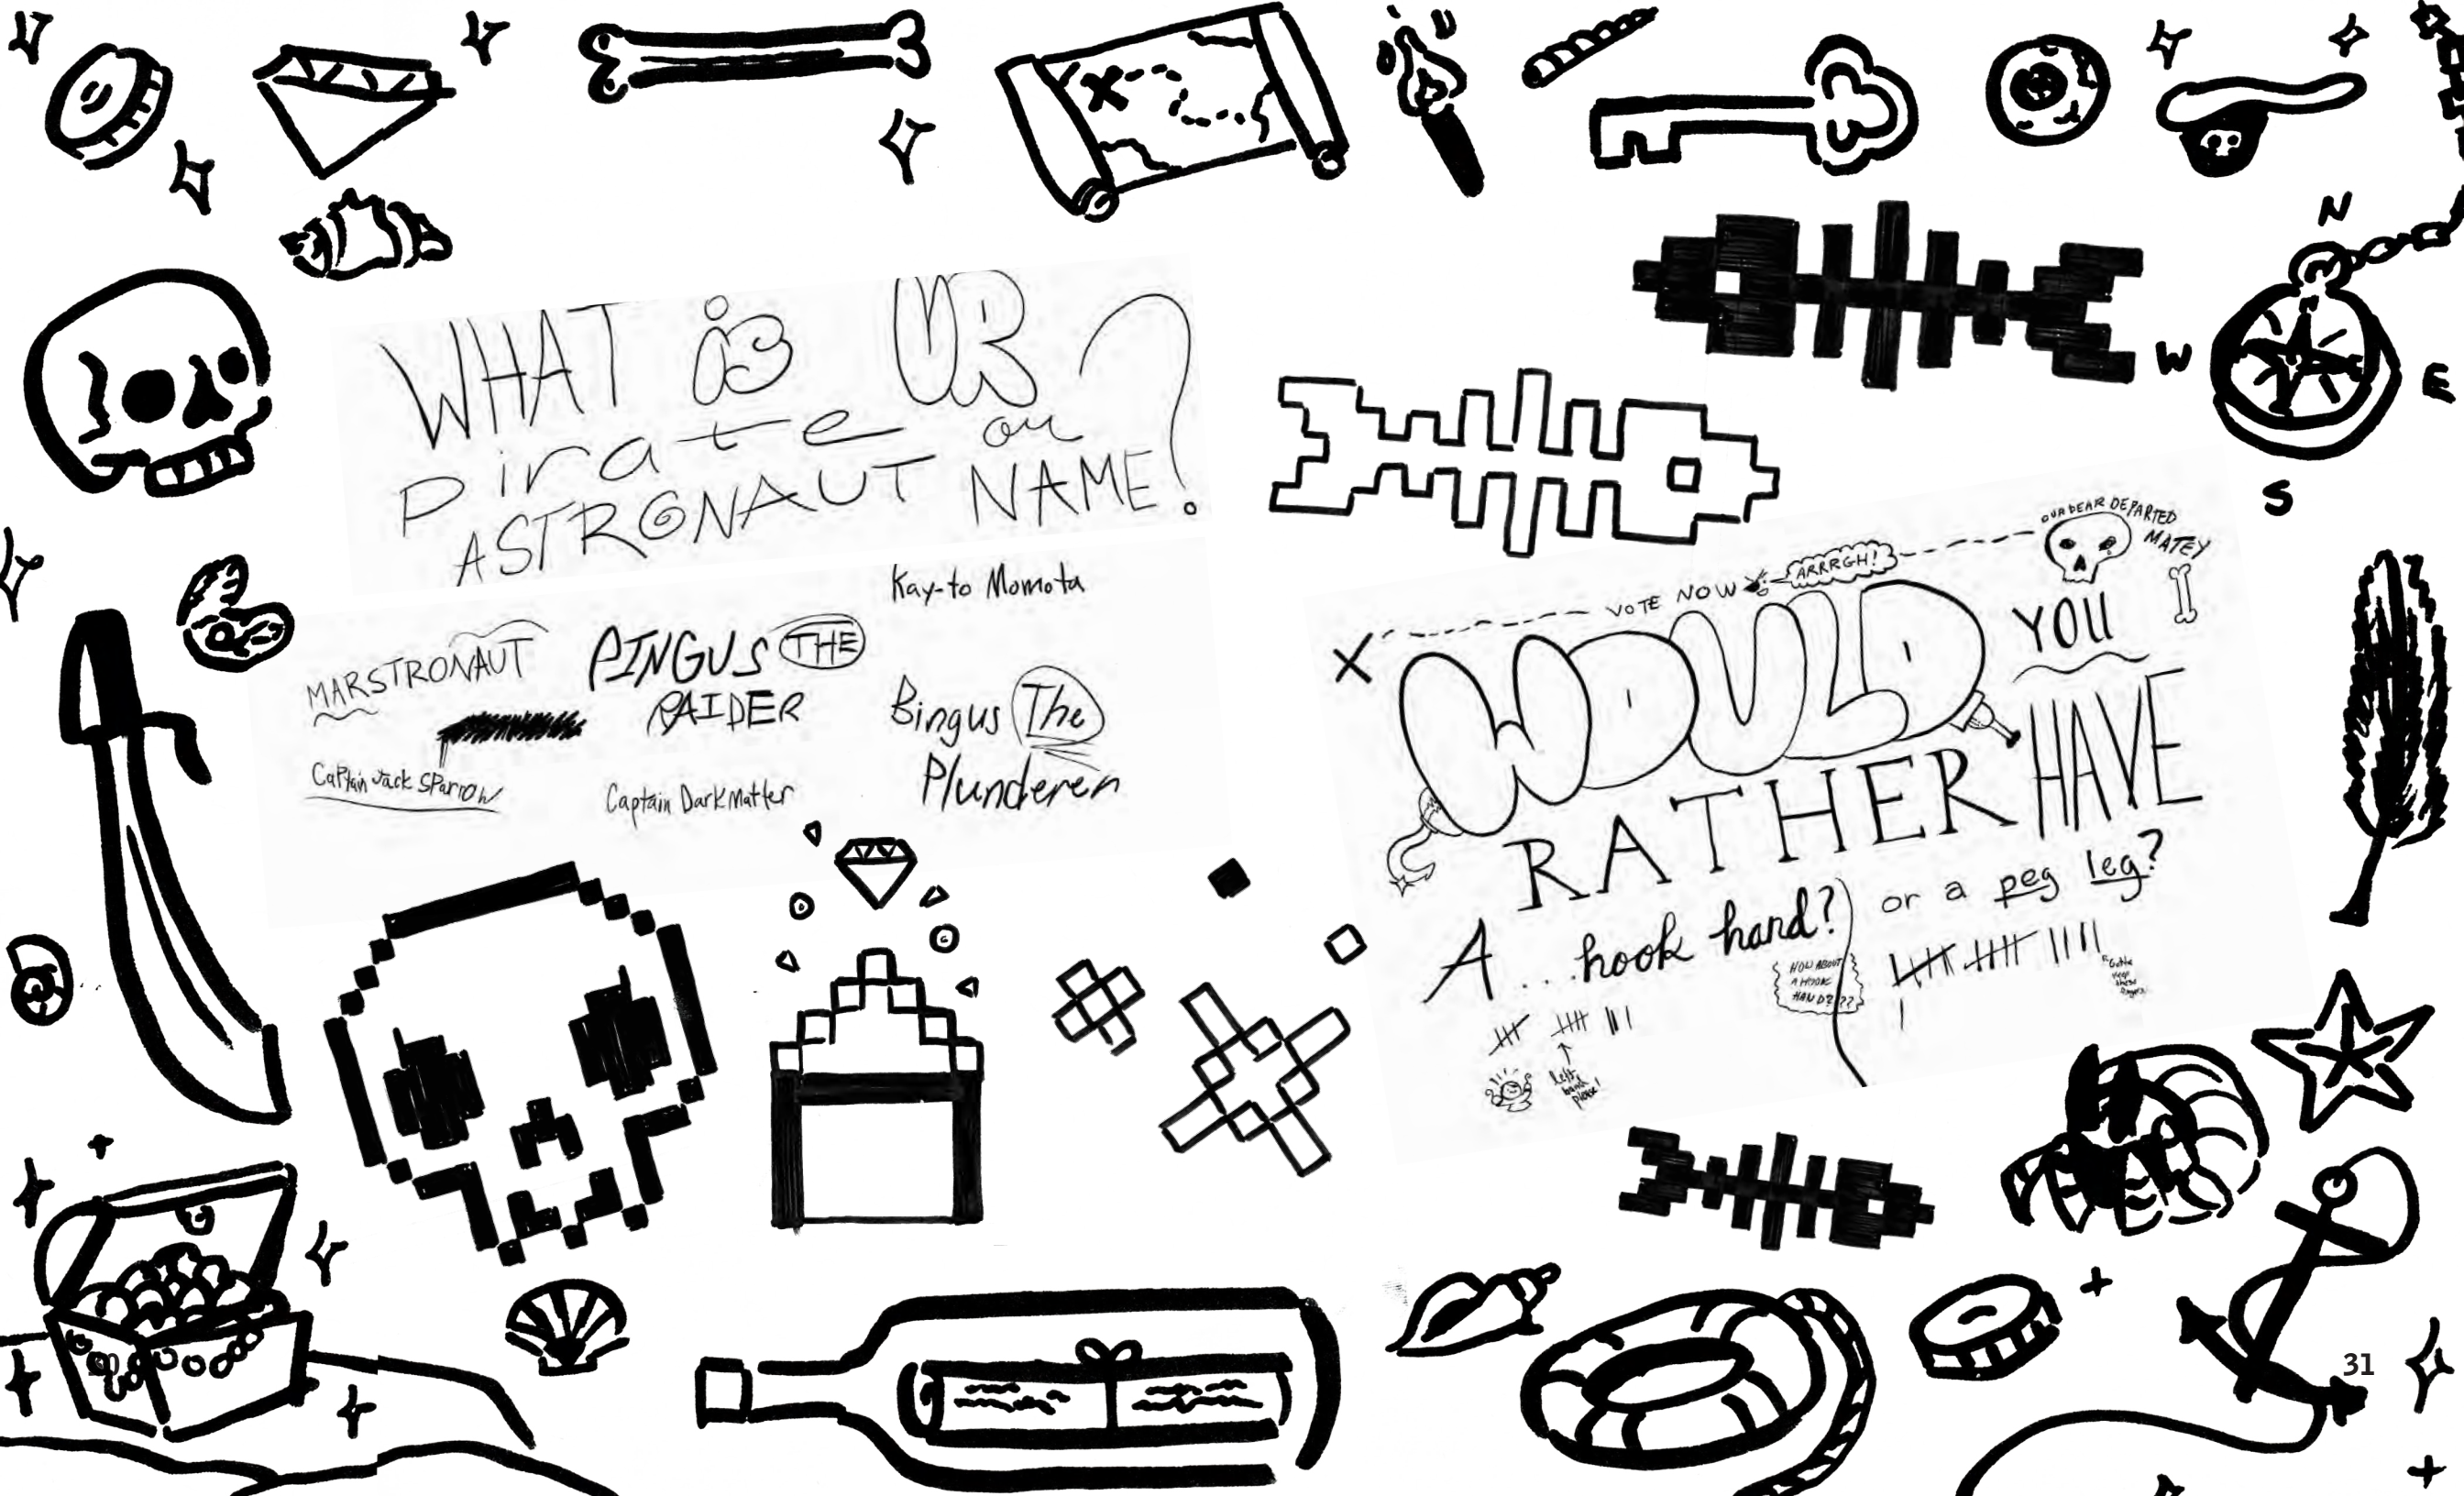 WHAT is UR
pirate or
ASTRONAUT NAME?
Kay-to Momota
MARSTRONAUT
PINGUS THE
RAIDER
Bingus The
Plunderer
Captain Jack Sparrow
Captain Dark Matter
N
W
E
S
OUR DEAR DEPARTED
MATEY
X
VOTE NOW
ARRRGH!
WOULD YOU
RATHER HAVE
A...hook hand? or a peg leg?
HOW ABOUT
A HOOK
HAND???
Gotta
keep
these
left
hand
please!
30
31